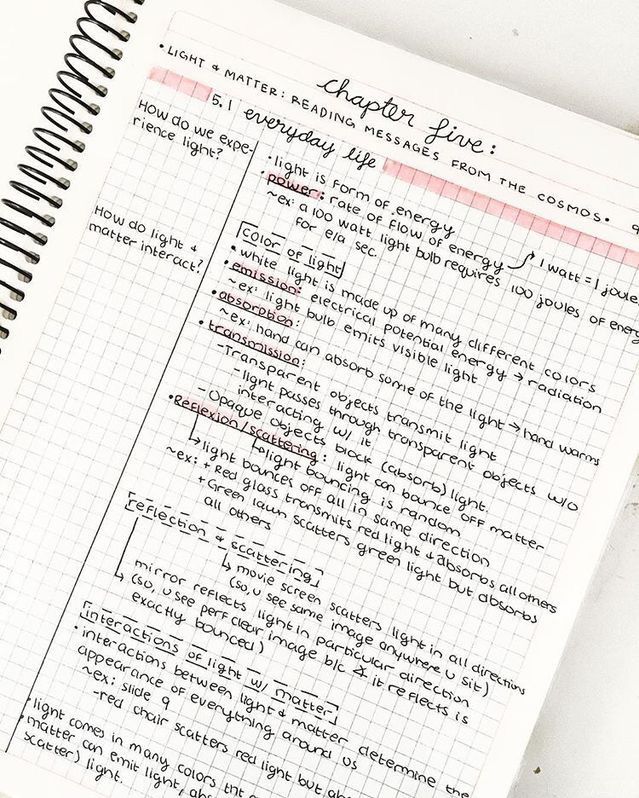 chapter five:
• LIGHT & MATTER: READING MESSAGES FROM THE COSMOS •
5.1 everyday life
How do we expe-
rience light?
• light is form of energy
• power: rate of flow of energy
1 watt = 1 joule
~ex: a 100 watt light bulb requires 100 joules of energy
for e/a sec.
color of light
• white light is made up of many different colors
• emission: electrical potential energy → radiation
~ex: light bulb emits visible light
How do light &
matter interact?
• absorption:
~ex: hand can absorb some of the light → hand warms
• transmission:
- Transparent objects transmit light
- light passes through transparent objects w/o
interacting w/ it
- Opaque objects block (absorb) light.
• Reflexion/scattering: light can bounce off matter
↳ light bouncing is random
↳ light bounces off all in same direction
~ex: + Red glass transmits red light & absorbs all others
+ Green lawn scatters green light but absorbs
all others
reflection & scattering
↳ movie screen scatters light in all directions
(so, u see same image anywhere u sit)
↳ mirror reflects light in particular direction
(so, u see perf clear image b/c ∡ it reflects is
exactly bounced)
interactions of light w/ matter
• interactions between light & matter determine the
appearance of everything around us
~ex: slide 9
- red chair scatters red light but abs
• light comes in many colors tht
• matter can emit light, abs
scatter) light.